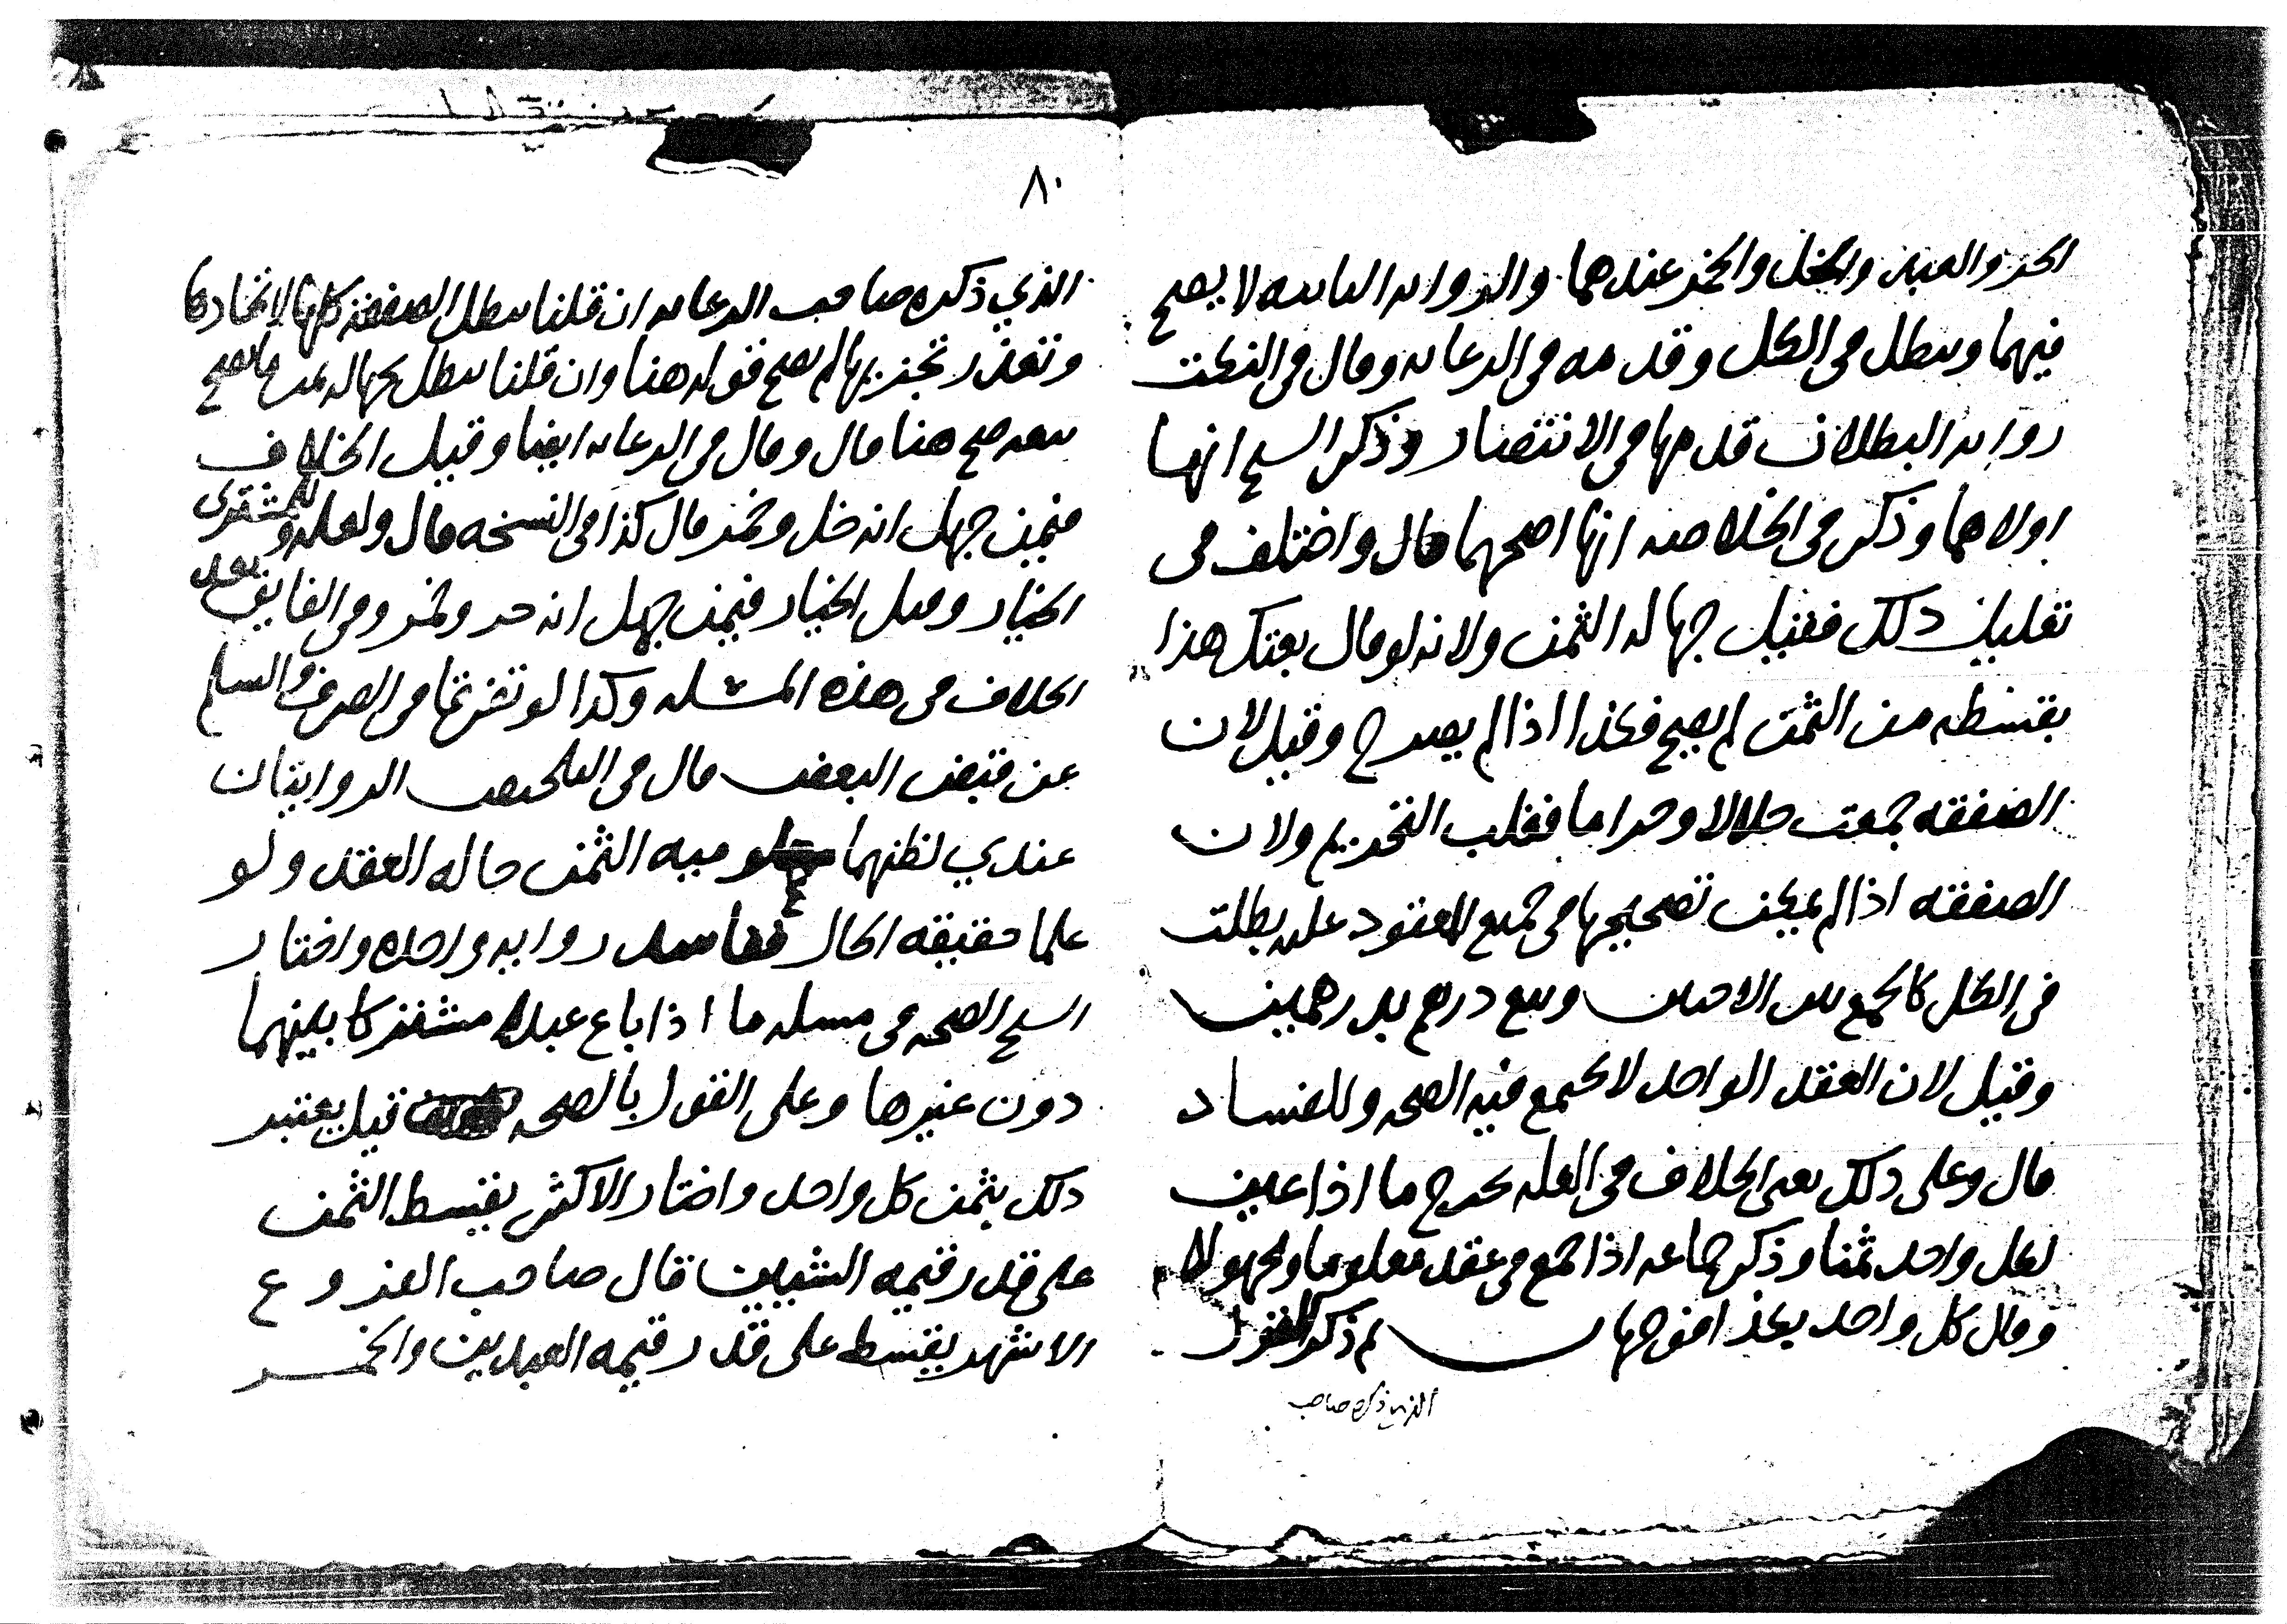 الحر والعبد والخل والخمر عندهما والروايه الثانيه لا يصح
فيهما ويبطل في الكل وقدمه في الرعايه وقال في النكت
روايه البطلان قدمها في الانتصار وذكر الشيخ انها
اولاهما وذكر في الخلاصه انها اصحهما قال واختلف في
تعليل ذلك فقيل جهاله الثمن ولانه لو قال بعتك هذا
بقسطه من الثمن لم يصح فكذا اذا لم يصرح وقيل لان
الصفقه جمعت حلالا وحراما فغلب التحريم ولان
الصفقه اذا لم يمكن تصحيحها في جميع المعقود عليه بطلت
في الكل كالجمع بين الاختين وبيع درهم بدرهمين
وقيل لان العقد الواحد لا يجمع فيه الصحه والفساد
قال وعلى ذلك يعني الخلاف في العله يخرج ما اذا عين
لكل واحد ثمنا وذكر جماعه اذا جمع في عقد معلوما ومجهولا
وقال كل واحد بكذا فوجهان لم ذكر القول
الذي ذكره صاحب
٨٠
الذي ذكره صاحب الرعايه ان قلنا يبطل الصفقه كلها لاتحادها
وتعذر تجزيها لم يصح قوله هنا وان قلنا يبطل لجهاله ثمن ما يصح
بيعه صح هنا قال وقال في الرعايه ايضا وقيل الخلاف
فيمن جهل انه خل وخمر قال كذا في النسخه قال ولعله وللمشتري
الخيار وقيل الخيار فيمن جهل انه حر وخمر وفي الفايق بعد
الخلاف في هذه المسئله وكذا لو تفرقا في الصرف والسلم
عن قبض البعض قال في التلخيص الروايتان
عندي لظنهما معلوميه الثمن حاله العقد ولو
علما حقيقه الحال ففاسد روايه واحده واختار
الشيخ الصحه في مسله ما اذا باع عبدا مشتركا بينهما
دون غيرها وعلى القول بالصحه قيل يعتبر
ذلك بثمن كل واحد واختار الاكثر بقسط الثمن
على قدر قيمه الشيئين قال صاحب الفروع
الاشهر يقسط على قدر قيمه العبدين والخمر